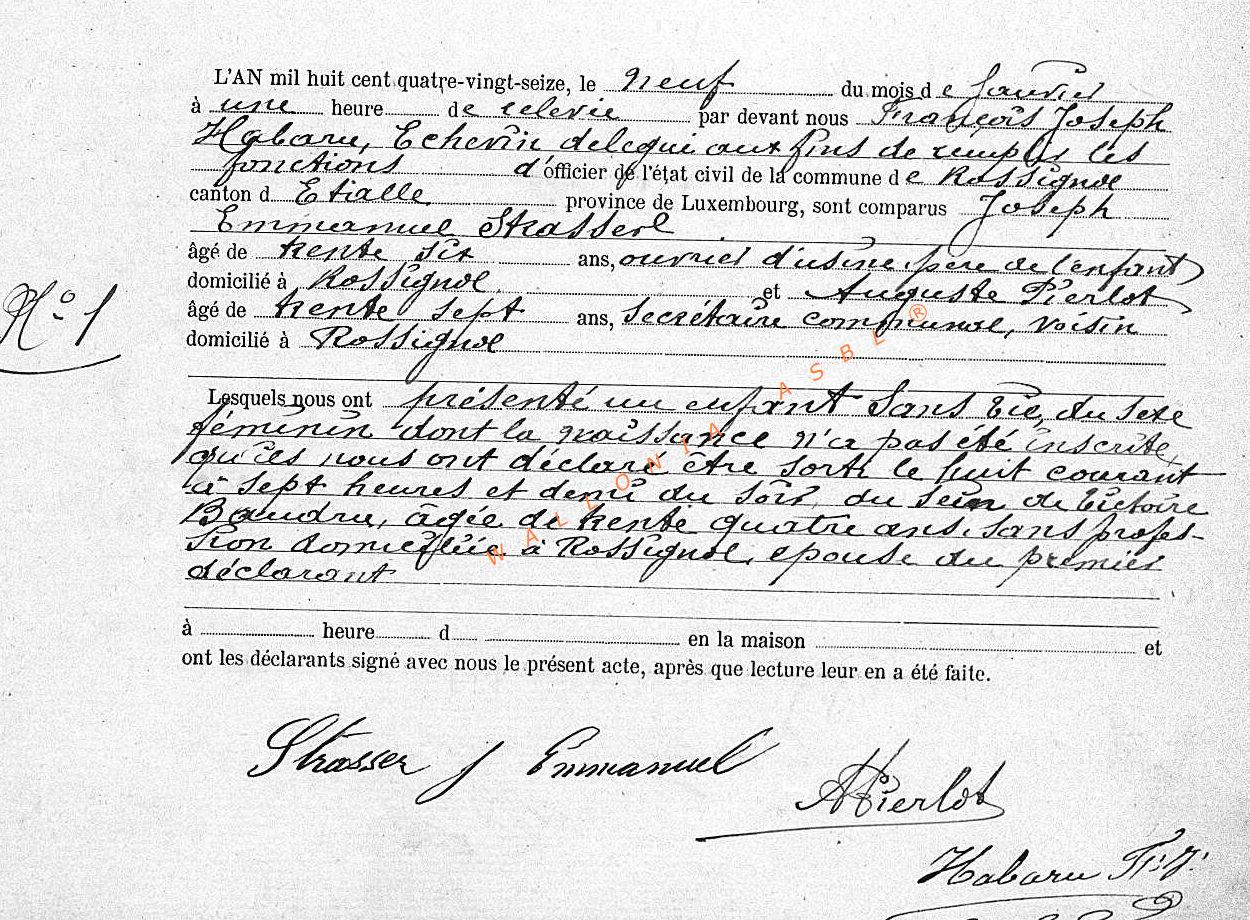 L'AN mil huit cent quatre-vingt-seize, le neuf du mois de Janvier
à une heure de relevée par devant nous François Joseph
Habaru, Echevin délégué aux fins de remplir les
fonctions d'officier de l'état civil de la commune de Rossignol
canton d Etalle province de Luxembourg, sont comparus Joseph
Emmanuel Strasser
âgé de trente six ans, ouvrier d'usine, père de l'enfant
domicilié à Rossignol et Auguste Pierlot
N° 1
âgé de trente sept ans, secrétaire communal, voisin
domicilié à Rossignol
Lesquels nous ont présenté un enfant sans vie, du sexe
féminin dont la naissance n'a pas été inscrite,
qu'ils nous ont déclaré être sorti le huit courant
à sept heures et demi du soir, du sein de Victoire
Baudru, âgée de trente quatre ans, sans profes-
sion domiciliée à Rossignol, épouse du premier
déclarant
à heure d en la maison et
ont les déclarants signé avec nous le présent acte, après que lecture leur en a été faite.
Strasser J Emmanuel
APierlot
Habaru F.J.
WALLONIA ASBL ®